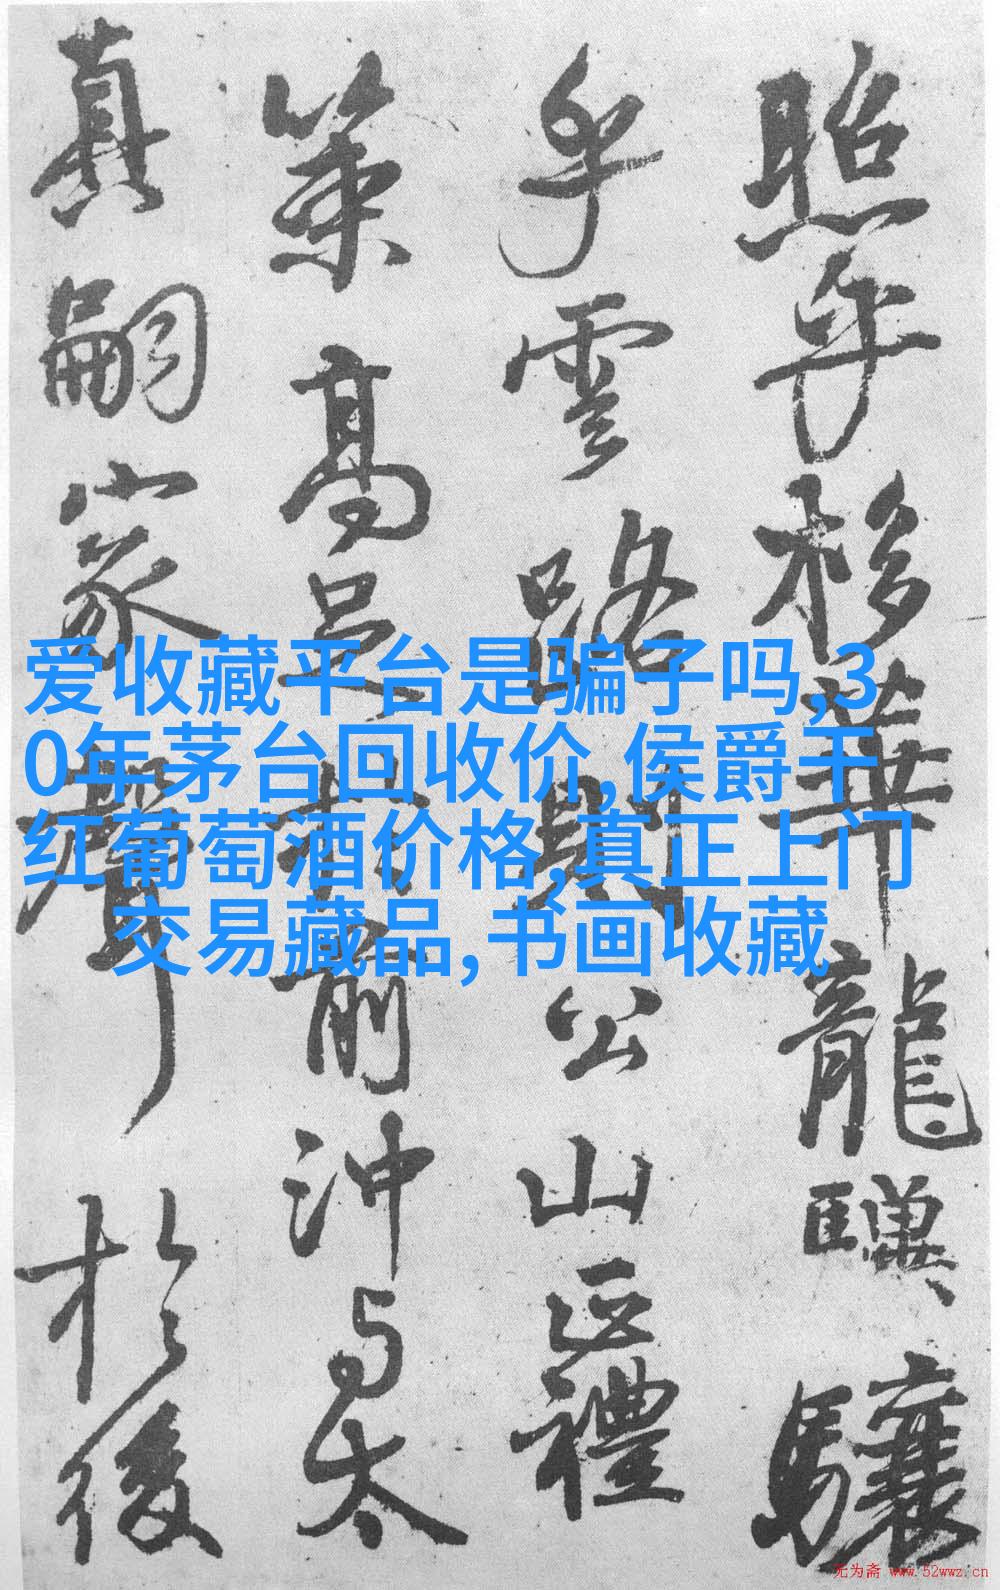 照乎移華龍驥驤
乎雲路則公山正禮
策高足於前沖与太
真嗣家聲於後
爱收藏平台是骗子吗,3
0年茅台回收价,侯爵干
红葡萄酒价格,真正上门
交易藏品,书画收藏
无为斋 www.52wwz.cn